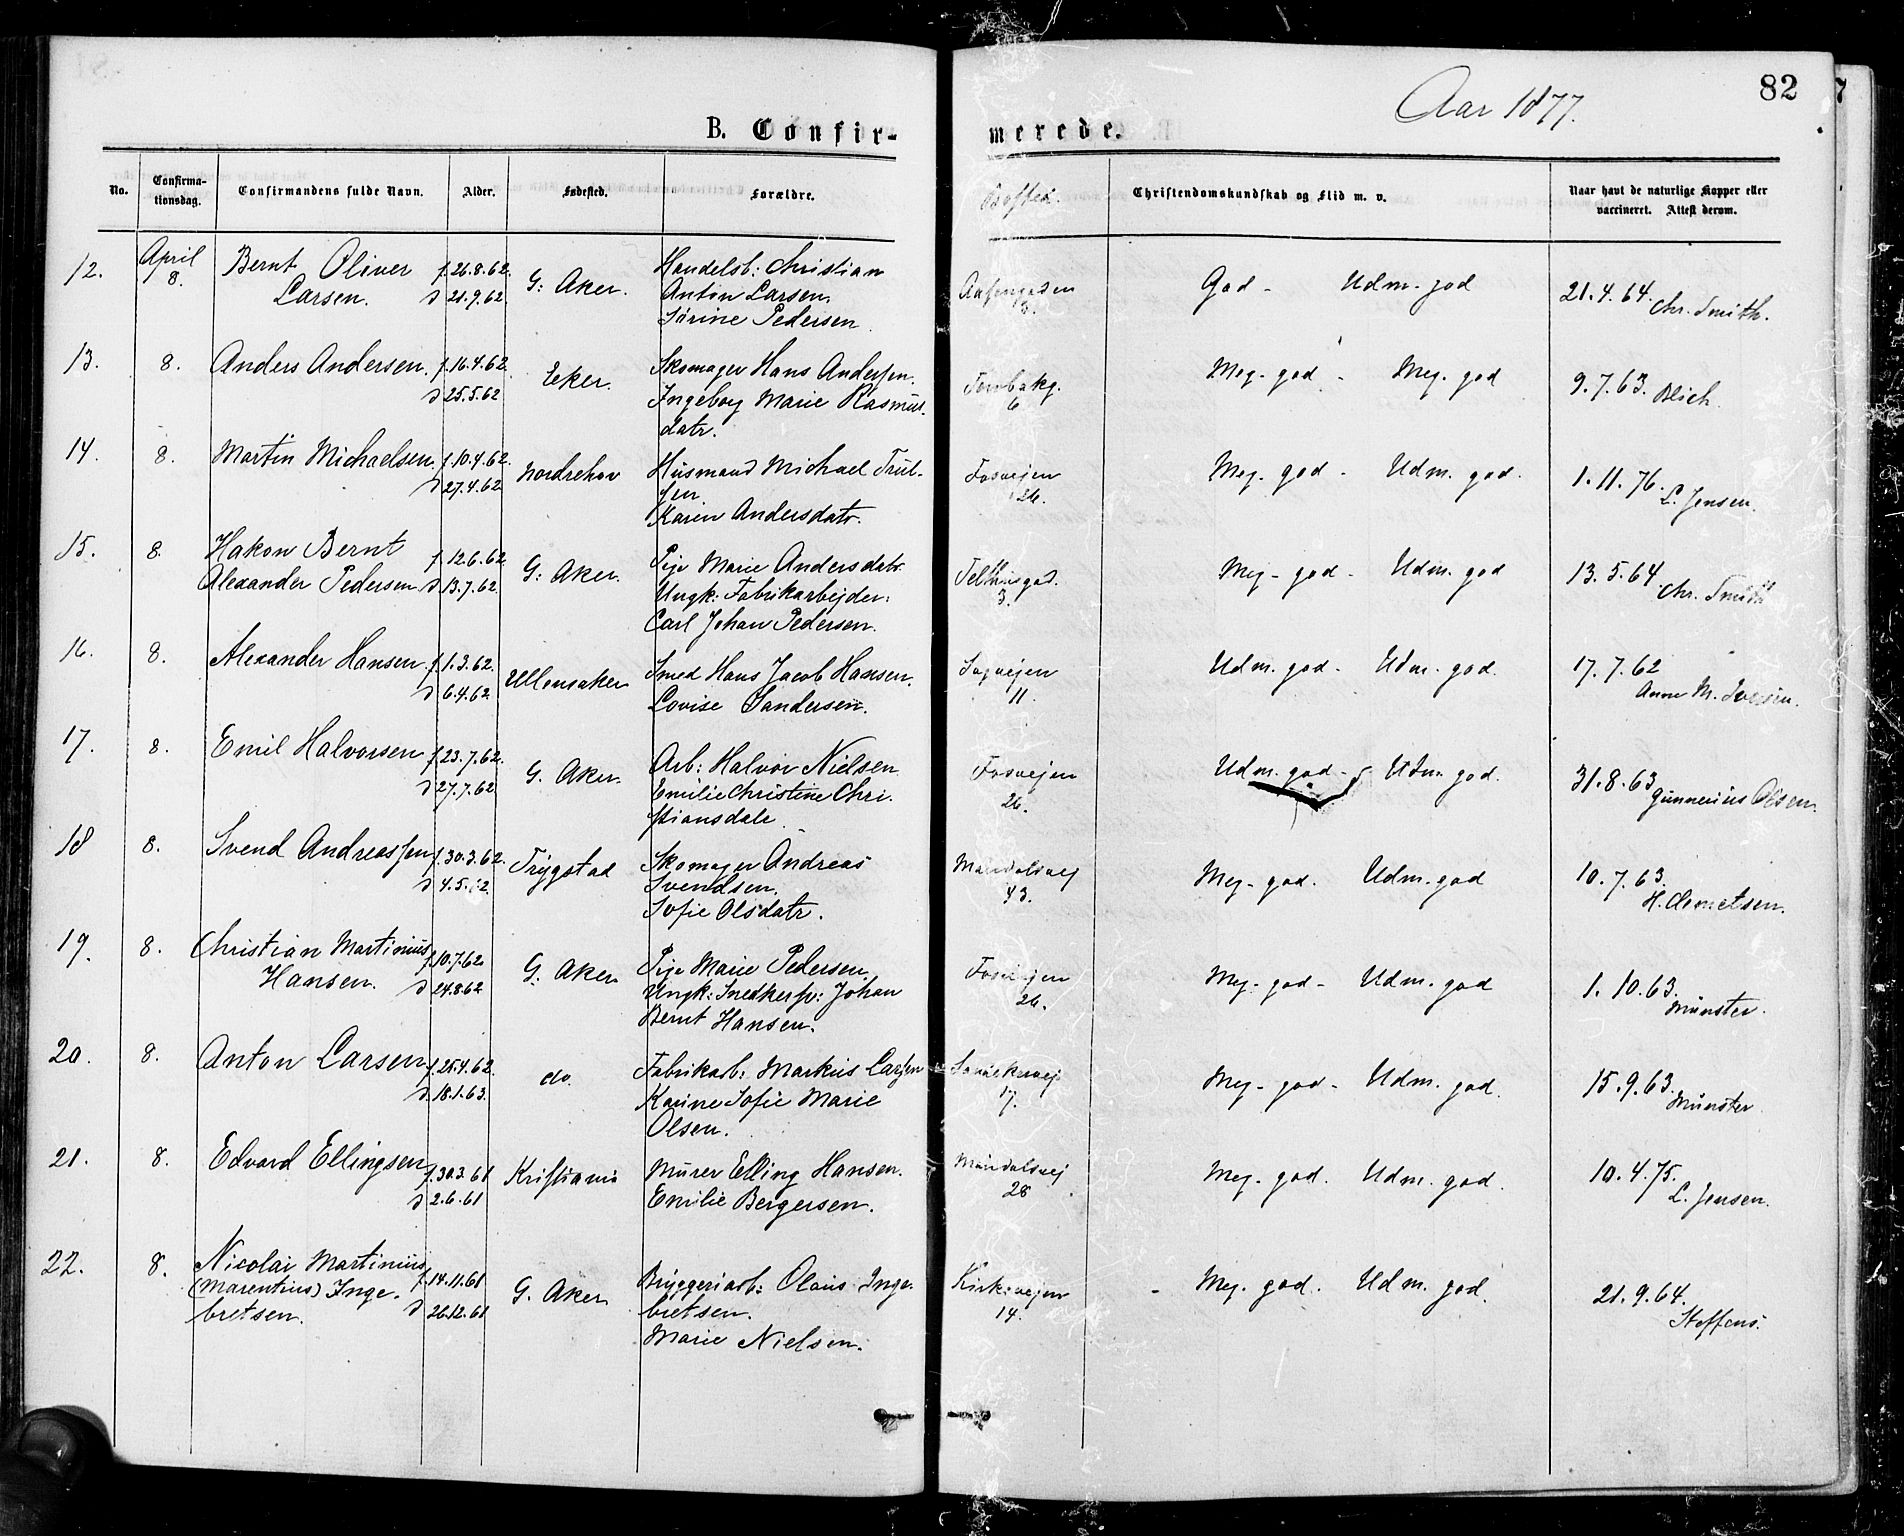 82
Aar 1877.
B. Confir-
merede.
No.
Confirma-
tionsdag.
Confirmandens fulde Navn.
Alder.
Fødested.
Forældre.
Bosted.
Christendomskundskab og Flid m. v.
Naar havt de naturlige Kopper eller
vaccineret. Attest derom.
12.
April
8.
Bernt Oliver
Larsen.
f. 26.8.62.
d 21.9.62.
G: Aker.
Handelsb: Christian
Anton Larsen.
Sørine Pedersen.
3.
God - Udm. god
21.4.64. Chr. Smith.
13.
8.
Anders Andersen.
f. 16.4.62.
d 25.5.62
Eker.
Skomager Hans Anderssen.
Ingeborg Marie Rasmus-
datr.
6.
Meg. god - Meg. god
9.7.63. Blich.
14.
8.
Martin Michaelsen.
f. 10.4.62.
d 27.4.62
Nordrehov
Husmand Michael Trul-
sen.
Karin Andersdatr.
Fosvejen
26.
Meg. god - Udm. god.
1.11.76.
L. Jensen.
15.
8.
Hakon Bernt
Alexander Pedersen
f. 12.6.62
d 13.7.62.
G: Aker.
Pige Marie Andersdatr.
Ungk: Fabrikarbejder:
Carl Johan Pedersen.
3.
Meg - god - Udm. god
13.5.64
Chr. Smith
16.
8.
Alexander Hansen
f. 1.3.62.
d 6.4.62
Ullensaker
Smed Hans Jacob Hansen.
Lovise Sandersen.
Sagvejen
11.
Udm. god - Udm. god.
17.7.62
Anne M. Iversen.
17.
8.
Emil Halvorsen
f. 23.7.62.
d 27.7.62
G. Aker.
Arb: Halvor Nielsen
Emilie Christine Chri-
stiansdatr.
Fosvejen
26.
Udm. god - Udm god.
31.8.63
Gunnerius Olsen.
18
8.
Svend Andreassen
f. 30.3.62.
d 4.5.62.
Trygstad
Skomager Andreas
Svendsen.
Sofie Olsdatr.
Maridalsvej
43.
Meg - god. Udm. god
10.7.63.
H. Clemetsen.
19.
8.
Christian Martinius
Hansen.
f. 10.7.62
d 24.8.62
G: Aker
Pige Marie Pedersen.
Ungk: Snedkersv: Johan
Bernt Hansen.
Fosvejen
26.
Meg. god - Udm. god
1.10.63.
Münster.
20.
8.
Anton Larsen
f. 25.4.62.
d. 18.1.63.
do.
Fabrikarb: Markus Larsen
Karine Sofie Marie
Olsen.
17.
Meg - god - Udm. god.
15.9.63.
Münster
21.
8.
Edvard Ellingsen
f. 30.3.61
d 2.6.61
Kristiania
Murer Elling Hansen.
Emilie Bergersen.
Maridalsvej
28
Meg. god. Udm. god.
10.4.75.
L. Jensen.
22.
8.
Nicolai Martinius
(Marentius) Inge-
bretsen.
f. 14.11.61
d 26.12.61
G. Aker
Bryggeriarb: Olaus Inge-
bretsen.
Marie Nielsen.
Kirkevejen
14.
Meg. god. Udm. god.
21.9.64.
Steffens.